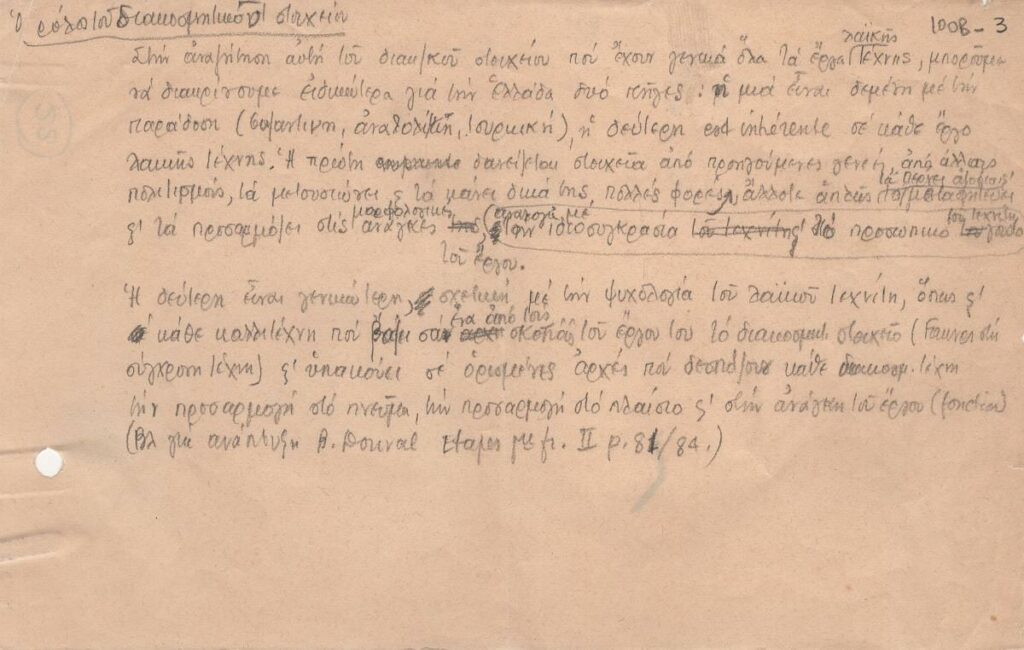 Ὁ ρόλος τοῦ διακοσμητικοῦ στοιχείου
1008-3
55
Στὴν ἀναζήτηση αὐτὴ τοῦ διακ/κοῦ στοιχείου ποὺ ἔχουν γενικὰ ὅλα τὰ ἔργα λαϊκῆς τέχνης, μποροῦμε
νὰ διακρίνουμε εἰδικώτερα γιὰ τὴν Ἑλλάδα δυὸ πηγές: ἡ μιὰ εἶναι δεμένη μὲ τὴν
παράδοση (βυζαντινη, ἀνατολίτικη, τουρκική), ἡ δεύτερη est inhérente σὲ κάθε ἔργο
λαϊκῆς τέχνης. Ἡ πρώτη δανείζεται στοιχεῖα ἀπὸ προηγούμενες γενεές, ἀπὸ ἄλλους
πολιτισμούς, τὰ μετουσιώνει ϗ τὰ κάνει δικά της, πολλὲς φορές, ἄλλοτε ἁπλῶς
ϗ τὰ προσαρμόζει στὶς μορφολογικὲς ἀνάγκες (ἀναλογα μὲ τὴν ἰδιοσυγκρασία τοῦ τεχνίτη ϗ τὸ προσωπικό του γοῦστο
τοῦ ἔργου.
Ἡ δεύτερη εἶναι γενικώτερη, σχετικὴ μὲ τὴν ψυχολογία τοῦ λαϊκοῦ τεχνίτη, ὅπως ϗ
κάθε καλλιτέχνη ποὺ βάζει σὰν ἕνα ἀπὸ τοὺς σκοποὺς τοῦ ἔργου του τὸ διακοσμητ. στοιχεῖο (στὴ
σύγχρονη τέχνη) ϗ ὑπακούει σὲ ὁρισμένες ἀρχὲς ποὺ δεσπόζουν κάθε διακοσμ. τέχνη
τὴν προσαρμογὴ στὸ πνεῦμα, τὴν προσαρμογὴ στὸ πλαίσιο ϗ στὴν ἀνάγκη τοῦ ἔργου (fonction)
(Βλ γιὰ ἀνάπτυξη II p. 81/84.)